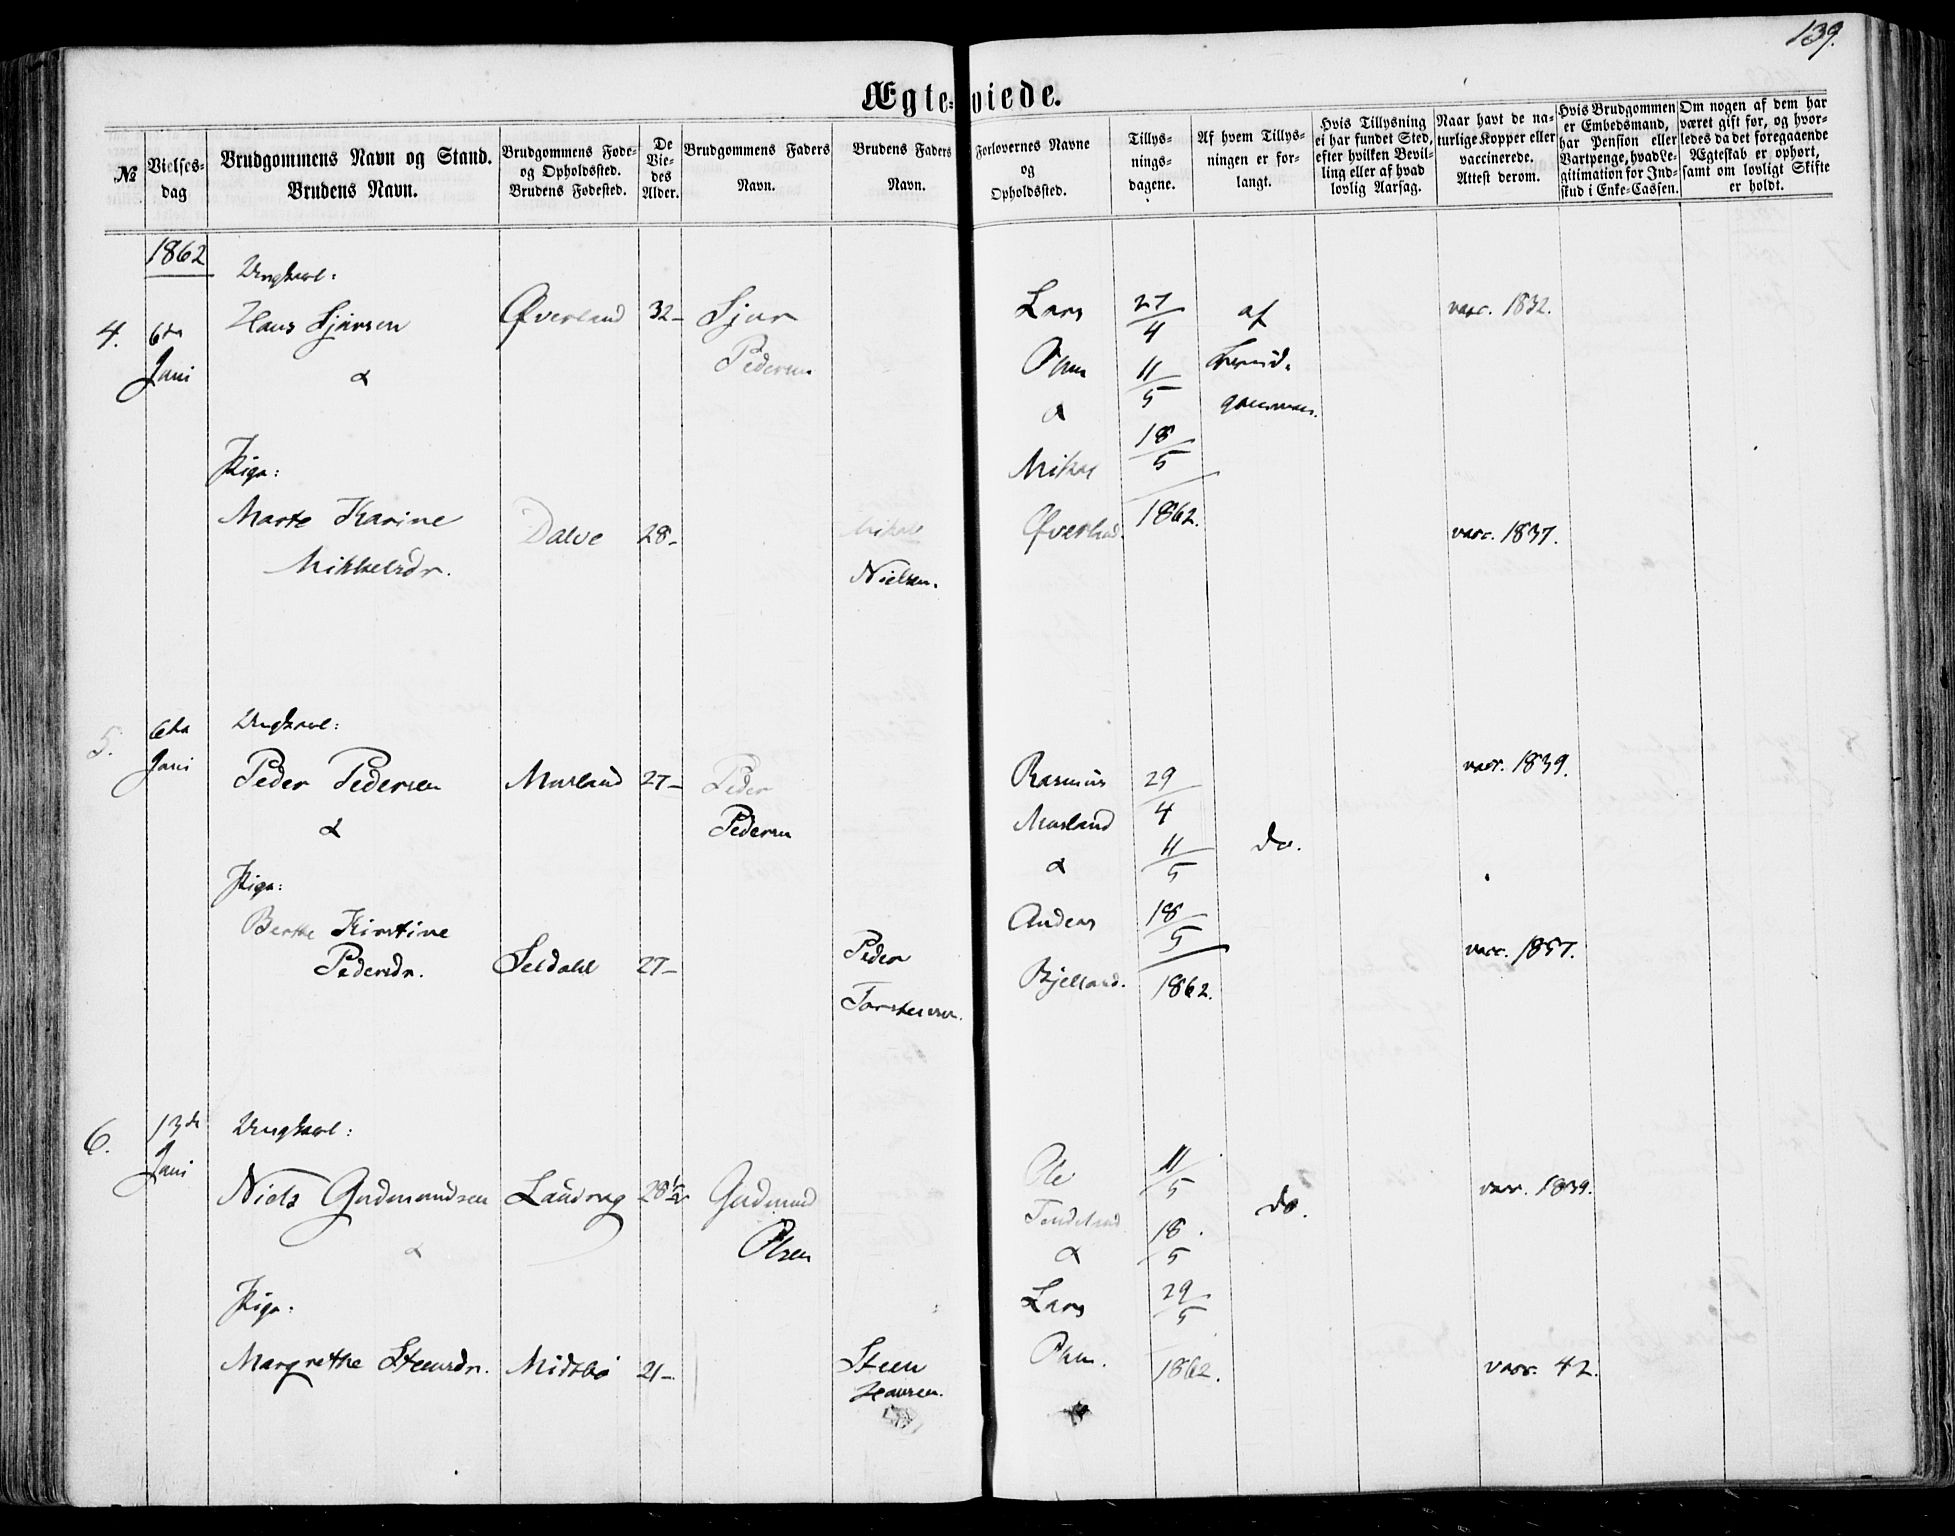 139.
Ægte-viede.
№
Vielses-
dag
Brudgommens Navn og Stand.
Brudens Navn.
Brudgommens Føde-
og Opholdssted.
Brudens Fødested.
De
Vie-
des
Alder.
Brudgommens Faders
Navn.
Brudens Faders
Navn.
Forlovernes Navne
og
Opholdssted.
Tillys-
nings-
dagene.
Af hvem Tillys-
ningen er for-
langt.
Hvis Tillysning
ei har fundet Sted,
efter hvilken Bevil-
ling eller af hvad
lovlig Aarsag.
Naar havt de na-
turlige Kopper eller
vaccinerede.
Attest derom.
Hvis Brudgommen
er Embedsmand,
har Pension eller
Vartpenge, hvad Le-
gitimation for Ind-
skud i Enke-Cassen.
Om nogen af dem har
været gift før, og hvor-
ledes da det foregaaende
Ægteskab er ophørt,
samt om lovligt Skifte
er holdt.
1862
4.
6te
Juni
Ungkarl:
Hans Sjursen
&
Pige:
Marte Karine
Mikkelsdr.
Øverland
Dalve
32-
28-
Sjur
Pedersen
Mikal
Nielsen.
Lars
&
Mikal
Øverland.
27/4
11/5
18/5
1862.
af
vacc. 1832.
vacc. 1837.
5.
6te
Juni
Ungkarl:
Peder Pedersen
&
Pige:
Berthe Kirstine
Pedersdr.
Musland
Seldahl
27-
27-
Peder
Pedersen
Peder
Torstensen.
Rasmus
Musland
&
Anders
Bjelland.
29/4
11/5
18/5
1862.
do.
vacc. 1839.
vacc. 1857.
6.
13de
Juni
Ungkarl:
Niels Gudmundsen
&
Pige:
Margrethe Steensdr.
Midtbø
28½
21-
Gudmund
Olsen
Steen
Hansen.
Ole
&
Lars
11/5
18/5
29/5
1862.
do.
vacc. 1839.
vacc. 42.